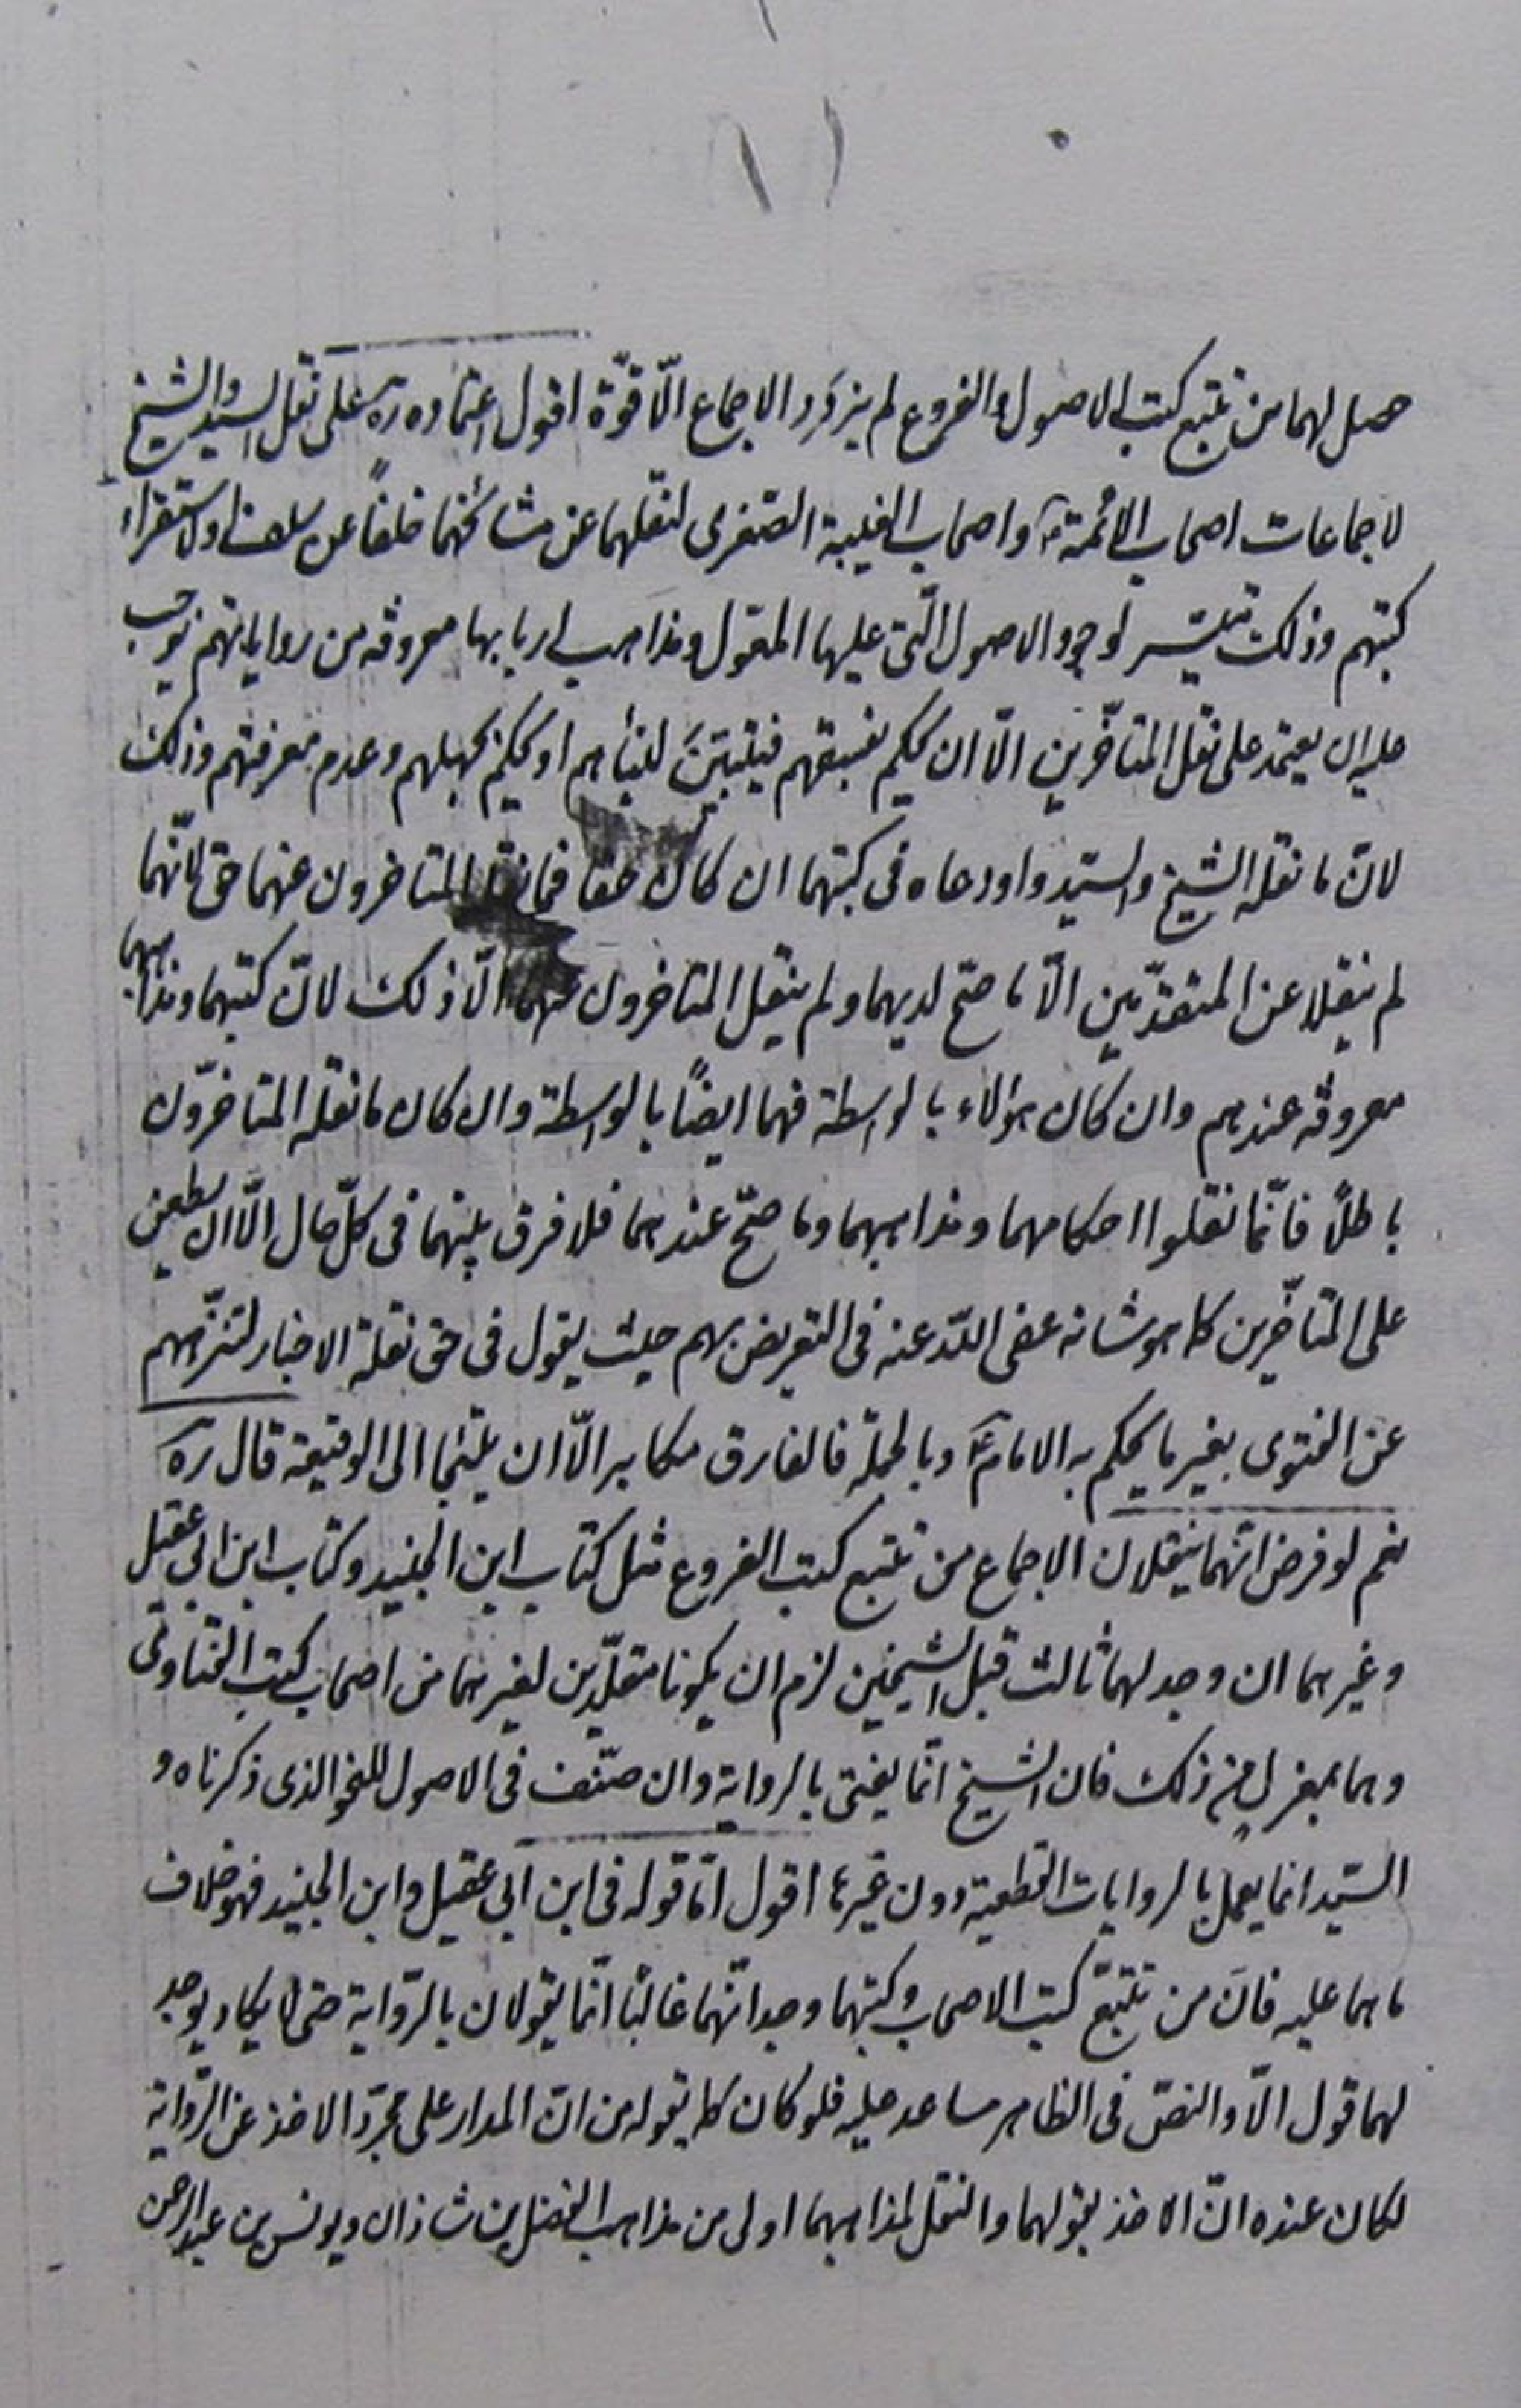 حصل لهما من تتبع كتب الاصول والفروع لم يزدد الاجماع الّا قوّة اقول اعتماده ره على نقل السيد والشيخ
لاجماعات اصحاب الائمة ع واصحاب الغيبة الصغرى لنقلهما عن مشائخهما خلفاً عن سلف او لاستقراء
كتبهم وذلك متيسر لوجود الاصول الّتى عليها المعول ومذاهب اربابها معروفه من رواياتهم يوجب
عليه ان يعتمد على نقل المتأخّرين الّا ان يحكم بفسقهم فيتبيّن لنبأهم او يحكم بجهلهم وعدم معرفتهم وذلك
لانّ ما نقله الشيخ والسيّد واودعاه فى كتبهما ان كان حقا فما نقله المتاخرون عنهما حق لانّهما
لم ينقلا عن المتقدّمين الّا ما صحّ لديهما ولم ينقل المتاخرون عنهما الّا ذلك لانّ كتبهما ومذاهبهما
معروفه عندهم وان كان هؤلاء بالواسطة فهما ايضاً بالواسطة وان كان ما نقله المتاخرّون
باطلاً فانّما نقلوا احكامهما ومذاهبهما وما صحّ عندهما فلا فرق بينهما فى كلّ حال الّا ان يطعن
على المتأخّرين كما هو شانه عفى اللّه عنه فى التعريض بهم حيث يقول فى حق نقلة الاخبار لتنزّههم
عن الفتوى بغير ما يحكم به الامام ع وبالجملة فالفارق مكابر الّا ان يلتجأ الى الوقيعة قال ره
نعم لو فرض انّهما ينقلان الاجماع من تتبع كتب الفروع مثل كتاب ابن الجنيد وكتاب ابن ابى عقيل
وغيرهما ان وجد لهما ثالث قبل الشيخين لزم ان يكونا مقلّدين لغيرهما من اصحاب كتب الفتاوى
وهما بمعزل من ذلك فان الشيخ انّما يفتى بالرواية وان صنّف فى الاصول للنحو الذى ذكرناه و
السيّد انما يعمل بالروايات القطعية دون غيرها اقول امّا قوله فى ابن ابى عقيل وابن الجنيد فهو خلاف
ما هما عليه فانّ من تتبّع كتب الاصحاب وكتبهما وجد انّهما غالبًا انّما يقولان بالرّواية حتى لا يكاد يوجد
لهما قول الّا والنصّ فى الظاهر مساعد عليه فلو كان كما يقوله من انّ المدار على مجرّد الاخذ عن الرّواية
لكان عنده انّ الاخذ بقولهما والنقل لمذاهبهما اولى من مذاهب الفضل بن شاذان ويونس بن عبد الرحمن